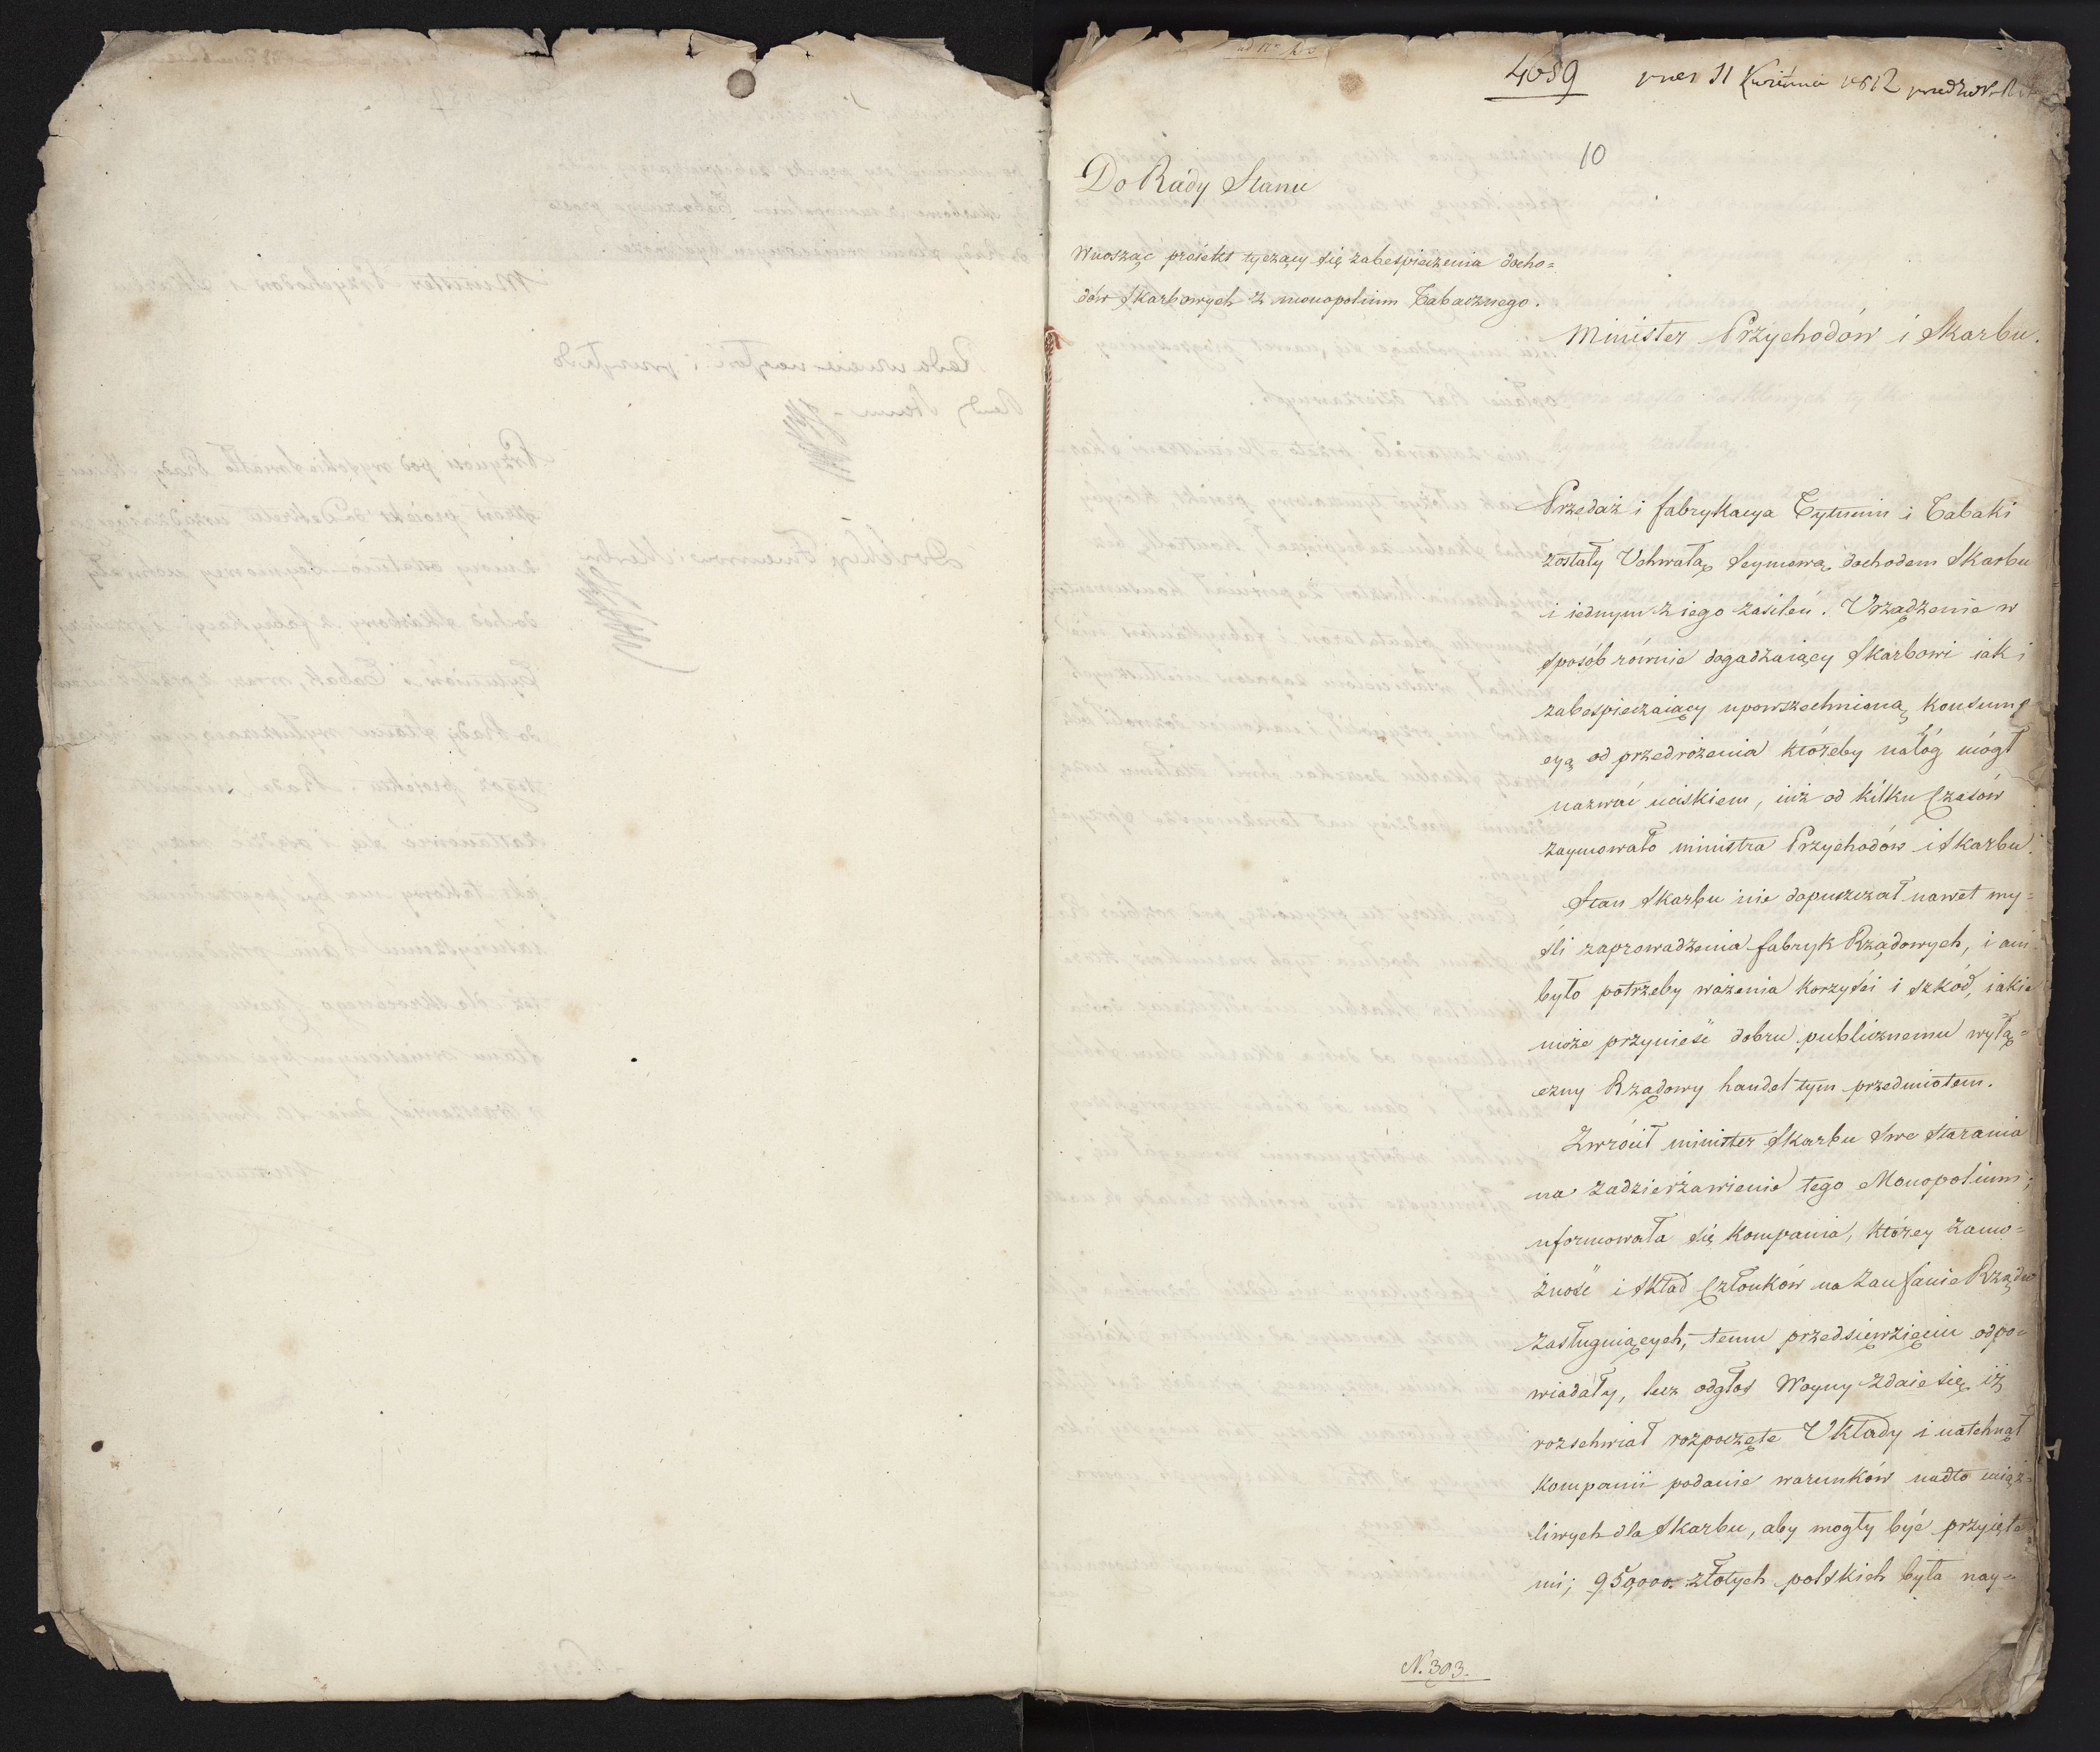 4659
10
Do Rady Stanu
Wnosząc proiekt tyczący się zabespieczenia docho=
dów Skarbowych z monopolium Tabacznego.
Minister Przychodów i Skarbu.
Przedaż i fabrykacya Tytuniu i Tabaki
zostały Uchwałą Seymową dochodem Skarbu
i iednym z iego zasileń. Urządzenie w
sposób równie dogadzaiący Skarbowi iak i
zabespieczaiący upowszechnioną konsump
cyą od przedrożenia któreby nałóg mógł
nazwać uciskiem, iuż od kilku Czasów
zaymowało ministra Przychodów i Skarbu.
Stan Skarbu nie dopuszczał nawet my=
śli zaprowadzenia fabryk Rządowych, i ani
było potrzeby ważenia korzyści i szkód, iakie
może przynieść dobru publicznemu wyłą=
czny Rządowy handel tym przedmiotem.
Zwrócił minister Skarbu swe starania
na zadzierżawienie tego Monopolium;
uformowała się kompania, którey zamo=
żność i skład Członków na zaufanie Rządu
zasługuiących, temu przedsięwzięciu odpo=
wiadały, lecz odgłos Woyny zdaie się iż
rozchwiał rozpoczęte Układy i natchnął
kompanii podanie warunków nadto uciąż=
liwych dla Skarbu, aby mogły być przyięte
mi; 950,000. złotych polskich była nay=
N. 393.